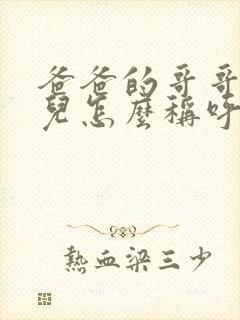 爸爸的哥哥
兒怎麼稱呼
熱血梁三少